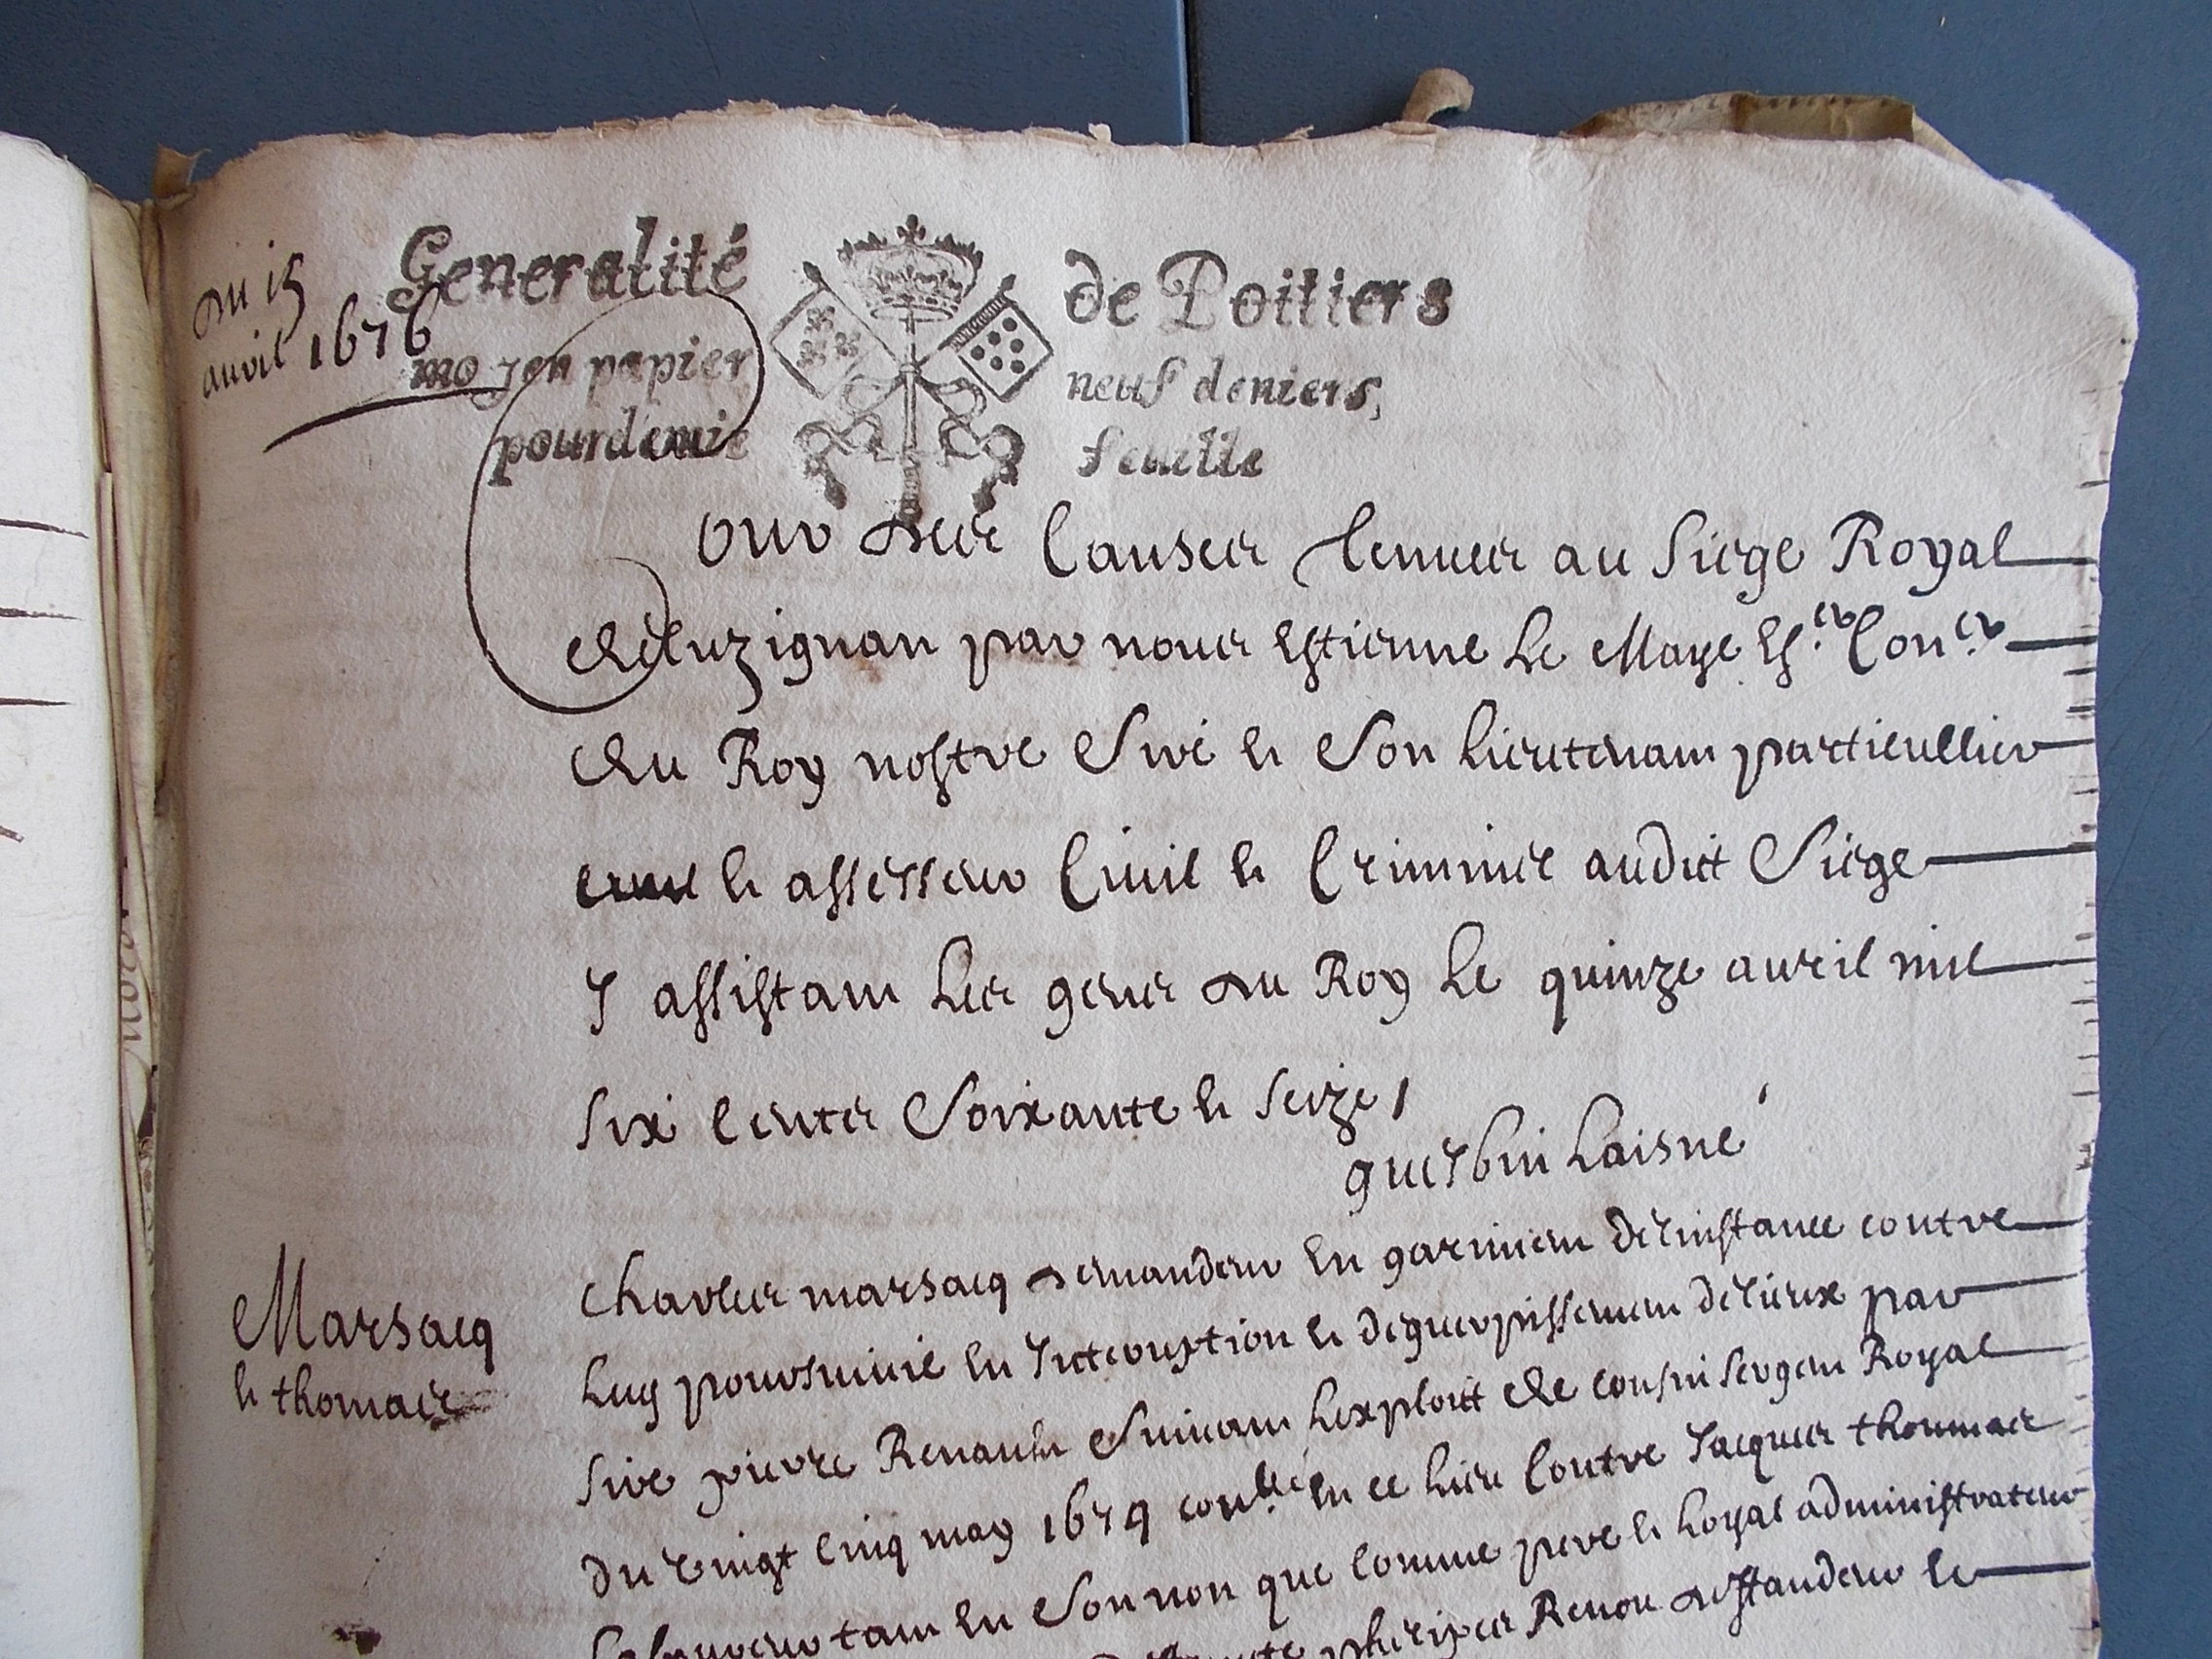 du 15
auvil 1676
Generalité de Poitiers
moyen papier neuf deniers,
pour demie feuille
Jour des Causes tenues au Siege Royal
de Luzignan par nous Estienne Le Maye Esc.er Con.er
du Roy nostre Sire et Son Lieutenant particullier
et assesseur Civil et Criminel audit Siege
y assistant Les gens du Roy Le quinze avril mil
Six Cents Soixante et Seize /
Laisné
Marsacq
et thomas
Charles marsacq demandeur En garniment de linstance contre
Luy poursuivie En Interruption et deguerpissement de lieux par
Sire pierre Renault Suivant Lexploit de cousin Sergent Royal
du vingt Cinq may 1674 con.lle En ce Lieu Contre Jacques thoumas
Laboureur tant En Son nom que Comme pere et Loyal administrateur
Renou deffandeur et